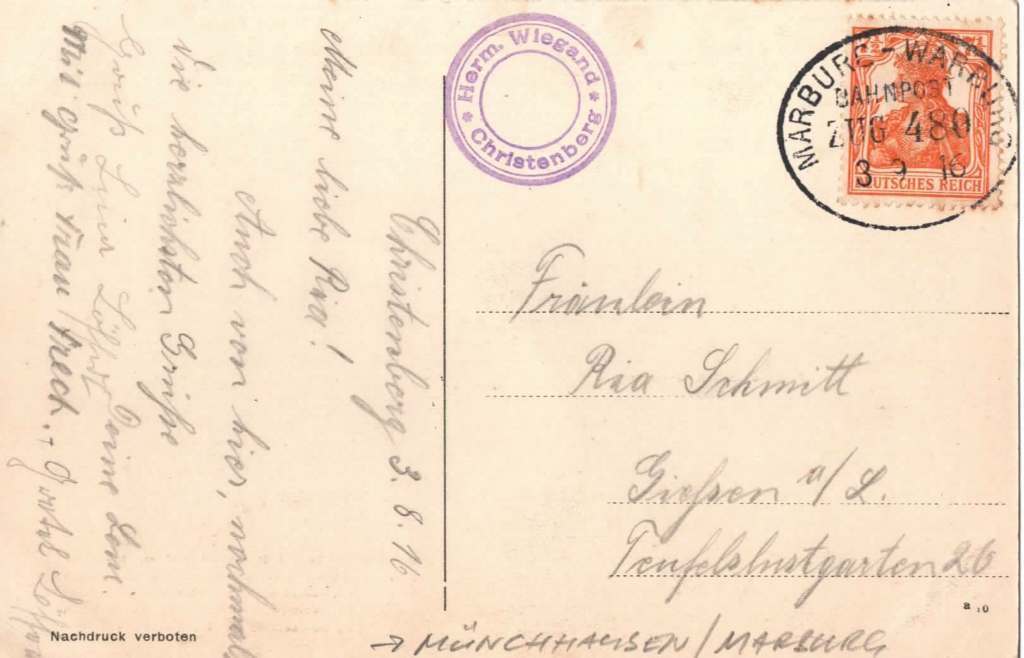 Christenberg 3. 8. 16.
Meine liebe Ria!
Auch von hier, nochmals
die herzlichsten Grüße
Deine Leni
Gruß
Mit Gruß Frau Frech.-
Herm. Wiegand
* Christenberg *
MARBURG - WARBURG
BAHNPOST
ZUG 480
3 9 16
DEUTSCHES REICH
Fräulein
Ria Schmitt
Gießen a/L.
Teufelslustgarten 26
a
Nachdruck verboten
→ MÜNCHHAUSEN / MARBURG